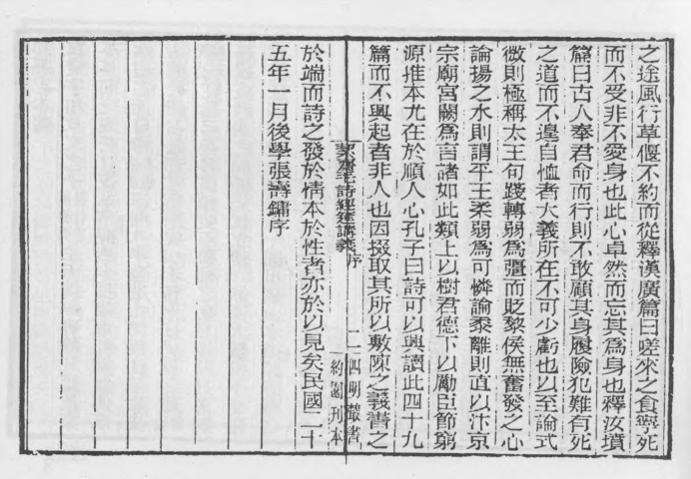 之途風行草偃不約而從釋漢廣篇曰嗟來之食寧死
而不受非不愛身也此心卓然而忘其為身也釋汝墳
篇曰古人奉君命而行則不敢顧其身履險犯難有死
之道而不遑自恤者大義所在不可少虧也以至論式
微則極稱太王句踐轉弱為彊而貶黎侯無奮發之心
論揚之水則謂平王柔弱為可憐論黍離則直以汴京
宗廟宮闕為言諸如此類上以樹君德下以勵臣節窮
源推本尤在於順人心孔子曰詩可以興讀此四十九
篇而不興起者非人也因掇取其所以敷陳之義書之
絜齋毛詩經筵講義 序 二 四明叢書
約園刊本
於端而詩之發於情本於性者亦於以見矣民國二十
五年一月後學張壽鏞序